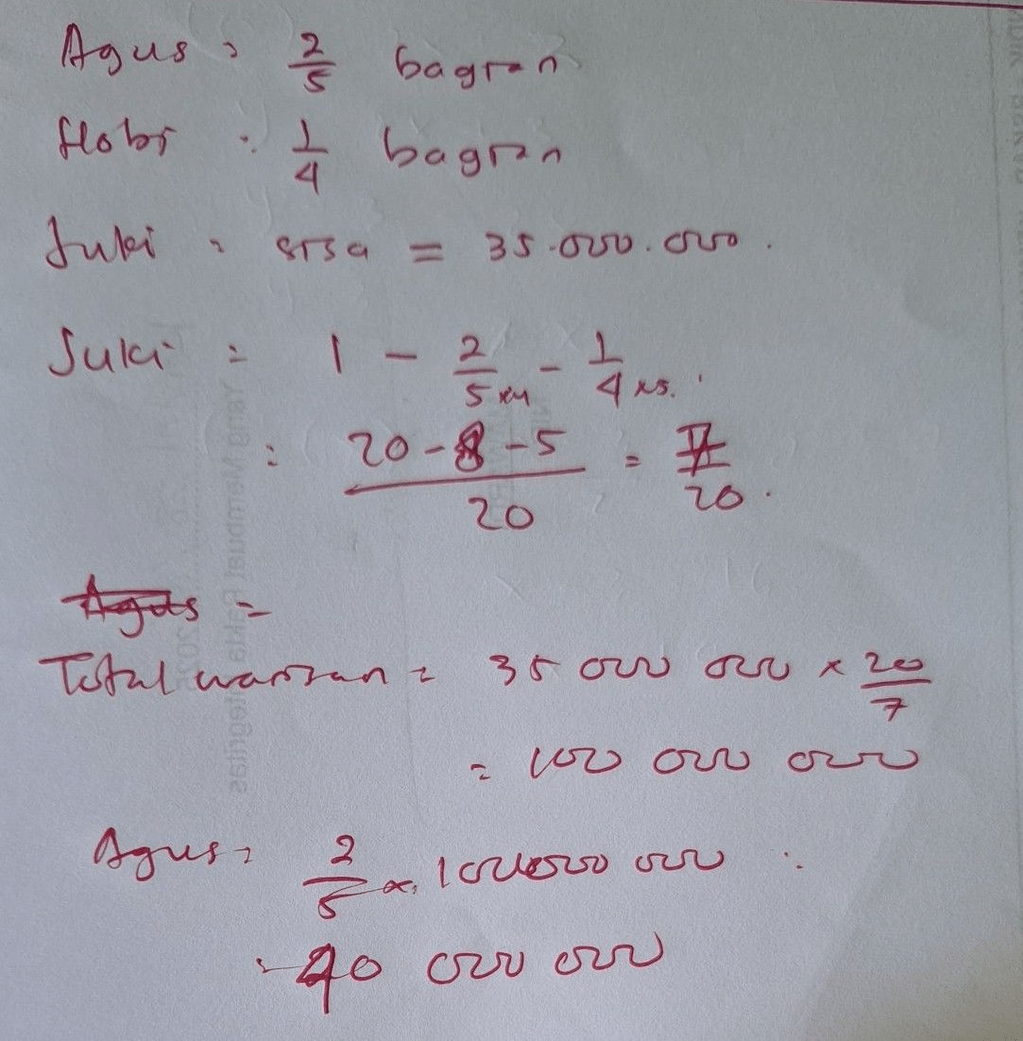 Agus : 2/5 bagian
Hobi : 1/4 bagian
Juki : sisa = 35.000.000.
Juki = 1 - 2/5 x4 - 1/4 x5.
= (20 - 8 - 5)/20 = 7/20.
Agus =
Total warisan = 35 000 000 x 20/7
= 100 000 000
Agus = 2/5 x 100 000 000 :
= 40 000 000